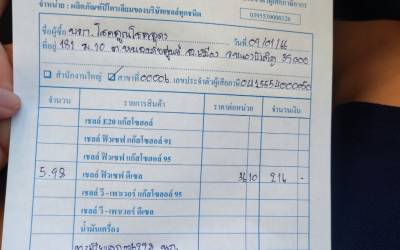 จำหน่าย : ผลิตภัณฑ์ปิโตรเลียมของบริษัทเชลล์ทุกชนิด
ชื่อผู้ซื้อ หจก. วันที่ 09/01/66
ที่อยู่ 181 ม.10 ต. อ.เมือง 39000
สำนักงานใหญ่ สาขาที่ 00006 เลขประจำตัวผู้เสียภาษี
จำนวน รายการสินค้า ราคาต่อหน่วย จำนวนเงิน
เชลล์ E20 แก๊สโซฮอล์
เชลล์ ฟิวเซฟ แก๊สโซฮอล์ 91
เชลล์ ฟิวเซฟ แก๊สโซฮอล์ 95
5.98 เชลล์ ฟิวเซฟ ดีเซล 36.10 216 -
เชลล์ วี - เพาเวอร์ แก๊สโซฮอล์ 95
เชลล์ วี - เพาเวอร์ ดีเซล
น้ำมันเครื่อง